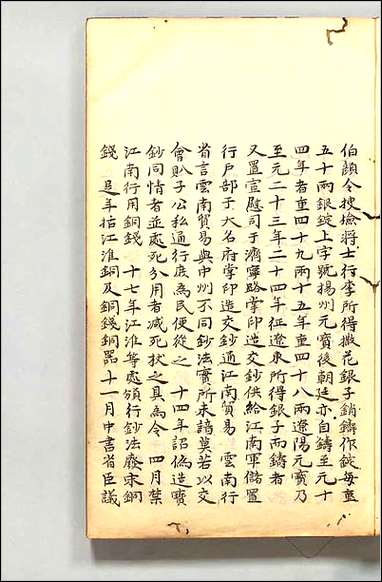 伯顏令搜撿將士行李所得撒花銀子銷鑄作錠每重
五十兩銀錠上字號揚州元寶後朝廷亦自鑄至元十
四年者重四十九兩十五年重四十八兩遼陽元寶乃
至元二十三年二十四年征遼東所得銀子而鑄者
又置宣慰司于濟寧路掌印造交鈔供給江南軍儲置
行戶部于大名府掌印造交鈔通江南貿易 雲南行
省言雲南貿易與中州不同鈔法實所未諳莫若以交
會𧴩子公私通行庶為民便從之 十四年詔偽造寶
鈔同情者並處死分用者减死杖之具為令 四月禁
江南行用銅錢 十七年江淮等處頒行鈔法廢宋銅
錢 是年括江淮銅及銅錢銅器十一月中書省臣議